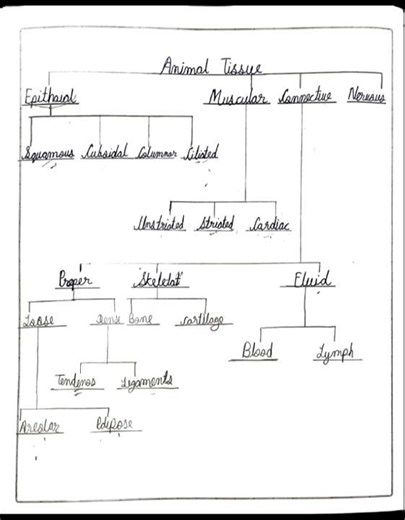 Animal Tissue
Epithaial Muscular Connective Nervous
Squamous Cuboidal Columnar Ciliated
Unstriated Striated Cardiac
Proper Skeletal Fluid
Loose Dense Bone Cartilage
Blood Lymph
Tendenos Ligaments
Areolar Adipose